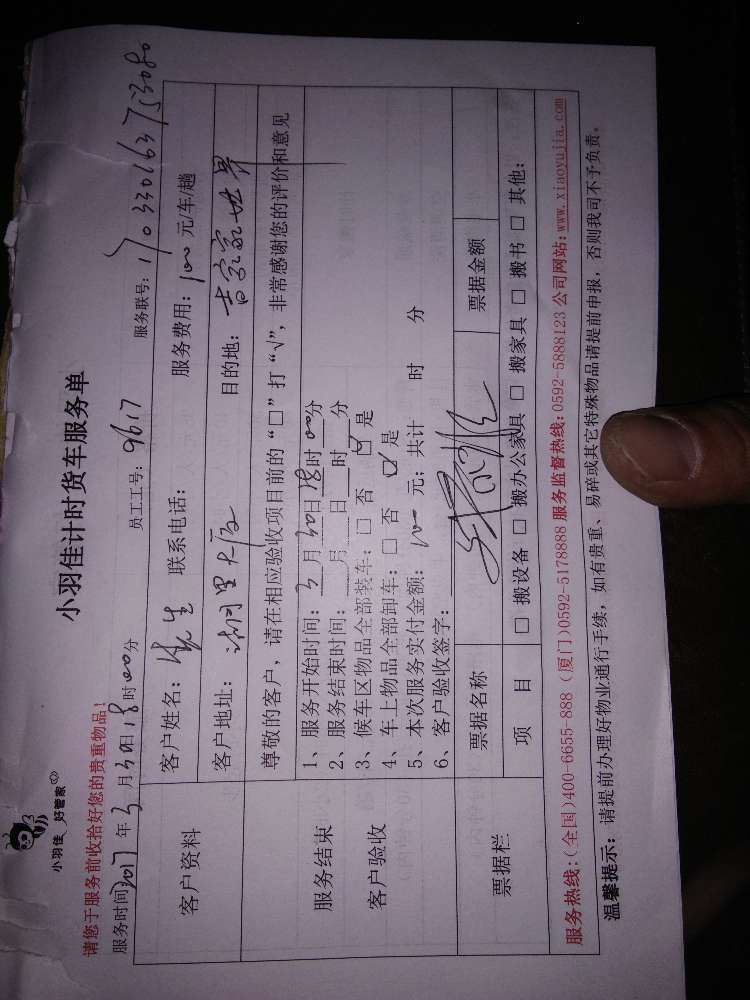 小羽佳 好管家
小羽佳计时货车服务单
请您于服务前收拾好您的贵重物品!
服务时间2017年3月30日18时00分 员工工号: 9617 服务联号: 170330163753080
客户资料
客户姓名: 先生 联系电话: 服务费用: 100 元/车/趟
客户地址: 湖里大厦 目的地: 吉家家世界
服务结束
客户验收
尊敬的客户, 请在相应验收项目前的“□”打“√”, 非常感谢您的评价和意见
1、服务开始时间: 3月30日18时00分
2、服务结束时间: 月 日 时 分
3、候车区物品全部装车: □ 否 ☑ 是
4、车上物品全部卸车: □ 否 ☑ 是
5、本次服务实付金额: 100 元; 共计 时 分
6、客户验收签字:
票据栏
票据名称 票据金额
项 目 □ 搬设备 □ 搬办公家具 □ 搬家具 □ 搬书 □ 其他:
服务热线:(全国)400-6655-888 (厦门)0592-5178888 服务监督热线: 0592-5888123 公司网站: www.xiaoyujia.com
温馨提示: 请提前办理好物业通行手续, 如有贵重、易碎或其它特殊物品请提前申报, 否则我司不予负责。